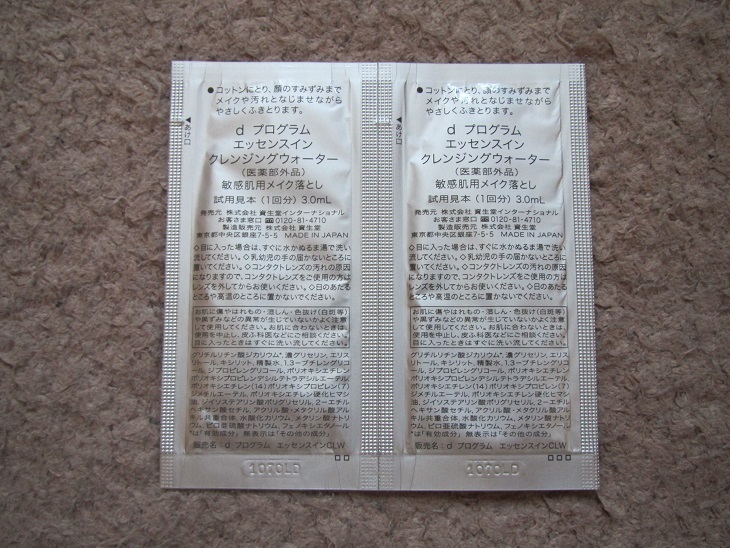 ●コットンにとり、顔のすみずみまで
メイクや汚れとなじませながら
やさしくふきとります。
◀あけ口
d プログラム
エッセンスイン
クレンジングウォーター
(医薬部外品)
敏感肌用メイク落とし
試用見本(1回分) 3.0mL
発売元 株式会社 資生堂インターナショナル
お客さま窓口 0120-81-4710
製造販売元 株式会社 資生堂
東京都中央区銀座7-5-5 MADE IN JAPAN
◇目に入った場合は、すぐに水かぬるま湯で洗い
流してください。◇乳幼児の手の届かないところに
置いてください。◇コンタクトレンズの汚れの原因
になりますので、コンタクトレンズをご使用の方は
レンズを外してからお使いください。◇日のあたる
ところや高温のところに置かないでください。
お肌に傷やはれもの・湿しん・色抜け(白斑等)
や黒ずみなどの異常が生じていないかよく注意
して使用してください。お肌に合わないときは、
使用を中止し、皮ふ科医などにご相談ください。
目に入ったときはすぐに洗い流してください。
グリチルリチン酸ジカリウム*,濃グリセリン,エリス
リトール,キシリット,精製水,1,3-ブチレングリコー
ル,ジプロピレングリコール,ポリオキシエチレン
ポリオキシプロピレンデシルテトラデシルエーテル,
ポリオキシエチレン(14)ポリオキシプロピレン(7)
ジメチルエーテル,ポリオキシエチレン硬化ヒマシ
油,ジイソステアリン酸ポリグリセリル,2-エチル
ヘキサン酸セチル,アクリル酸・メタクリル酸アル
キル共重合体,水酸化カリウム,メタリン酸ナトリ
ウム,ピロ亜硫酸ナトリウム,フェノキシエタノール
*は「有効成分」無表示は「その他の成分」
販売名:d プログラム エッセンスインCLW
1070LD
●コットンにとり、顔のすみずみまで
メイクや汚れとなじませながら
やさしくふきとります。
◀あけ口
d プログラム
エッセンスイン
クレンジングウォーター
(医薬部外品)
敏感肌用メイク落とし
試用見本(1回分) 3.0mL
発売元 株式会社 資生堂インターナショナル
お客さま窓口 0120-81-4710
製造販売元 株式会社 資生堂
東京都中央区銀座7-5-5 MADE IN JAPAN
◇目に入った場合は、すぐに水かぬるま湯で洗い
流してください。◇乳幼児の手の届かないところに
置いてください。◇コンタクトレンズの汚れの原因
になりますので、コンタクトレンズをご使用の方は
レンズを外してからお使いください。◇日のあたる
ところや高温のところに置かないでください。
お肌に傷やはれもの・湿しん・色抜け(白斑等)
や黒ずみなどの異常が生じていないかよく注意
して使用してください。お肌に合わないときは、
使用を中止し、皮ふ科医などにご相談ください。
目に入ったときはすぐに洗い流してください。
グリチルリチン酸ジカリウム*,濃グリセリン,エリス
リトール,キシリット,精製水,1,3-ブチレングリコー
ル,ジプロピレングリコール,ポリオキシエチレン
ポリオキシプロピレンデシルテトラデシルエーテル,
ポリオキシエチレン(14)ポリオキシプロピレン(7)
ジメチルエーテル,ポリオキシエチレン硬化ヒマシ
油,ジイソステアリン酸ポリグリセリル,2-エチル
ヘキサン酸セチル,アクリル酸・メタクリル酸アル
キル共重合体,水酸化カリウム,メタリン酸ナトリ
ウム,ピロ亜硫酸ナトリウム,フェノキシエタノール
*は「有効成分」無表示は「その他の成分」
販売名:d プログラム エッセンスインCLW
1070LD